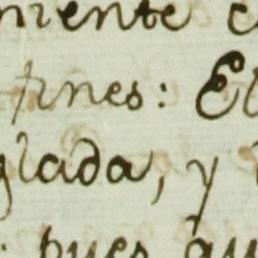 niente
fines: El
glada, y
pues